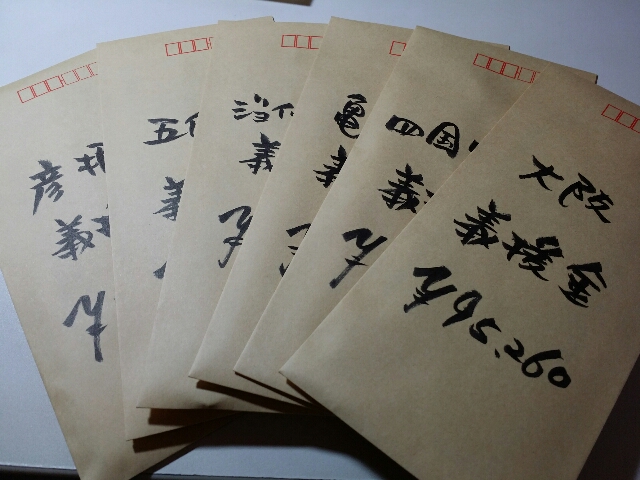 彦
義援
¥
五代
義
当代
義
¥
亀
義
四国
義
¥
大阪
義援金
¥95,260